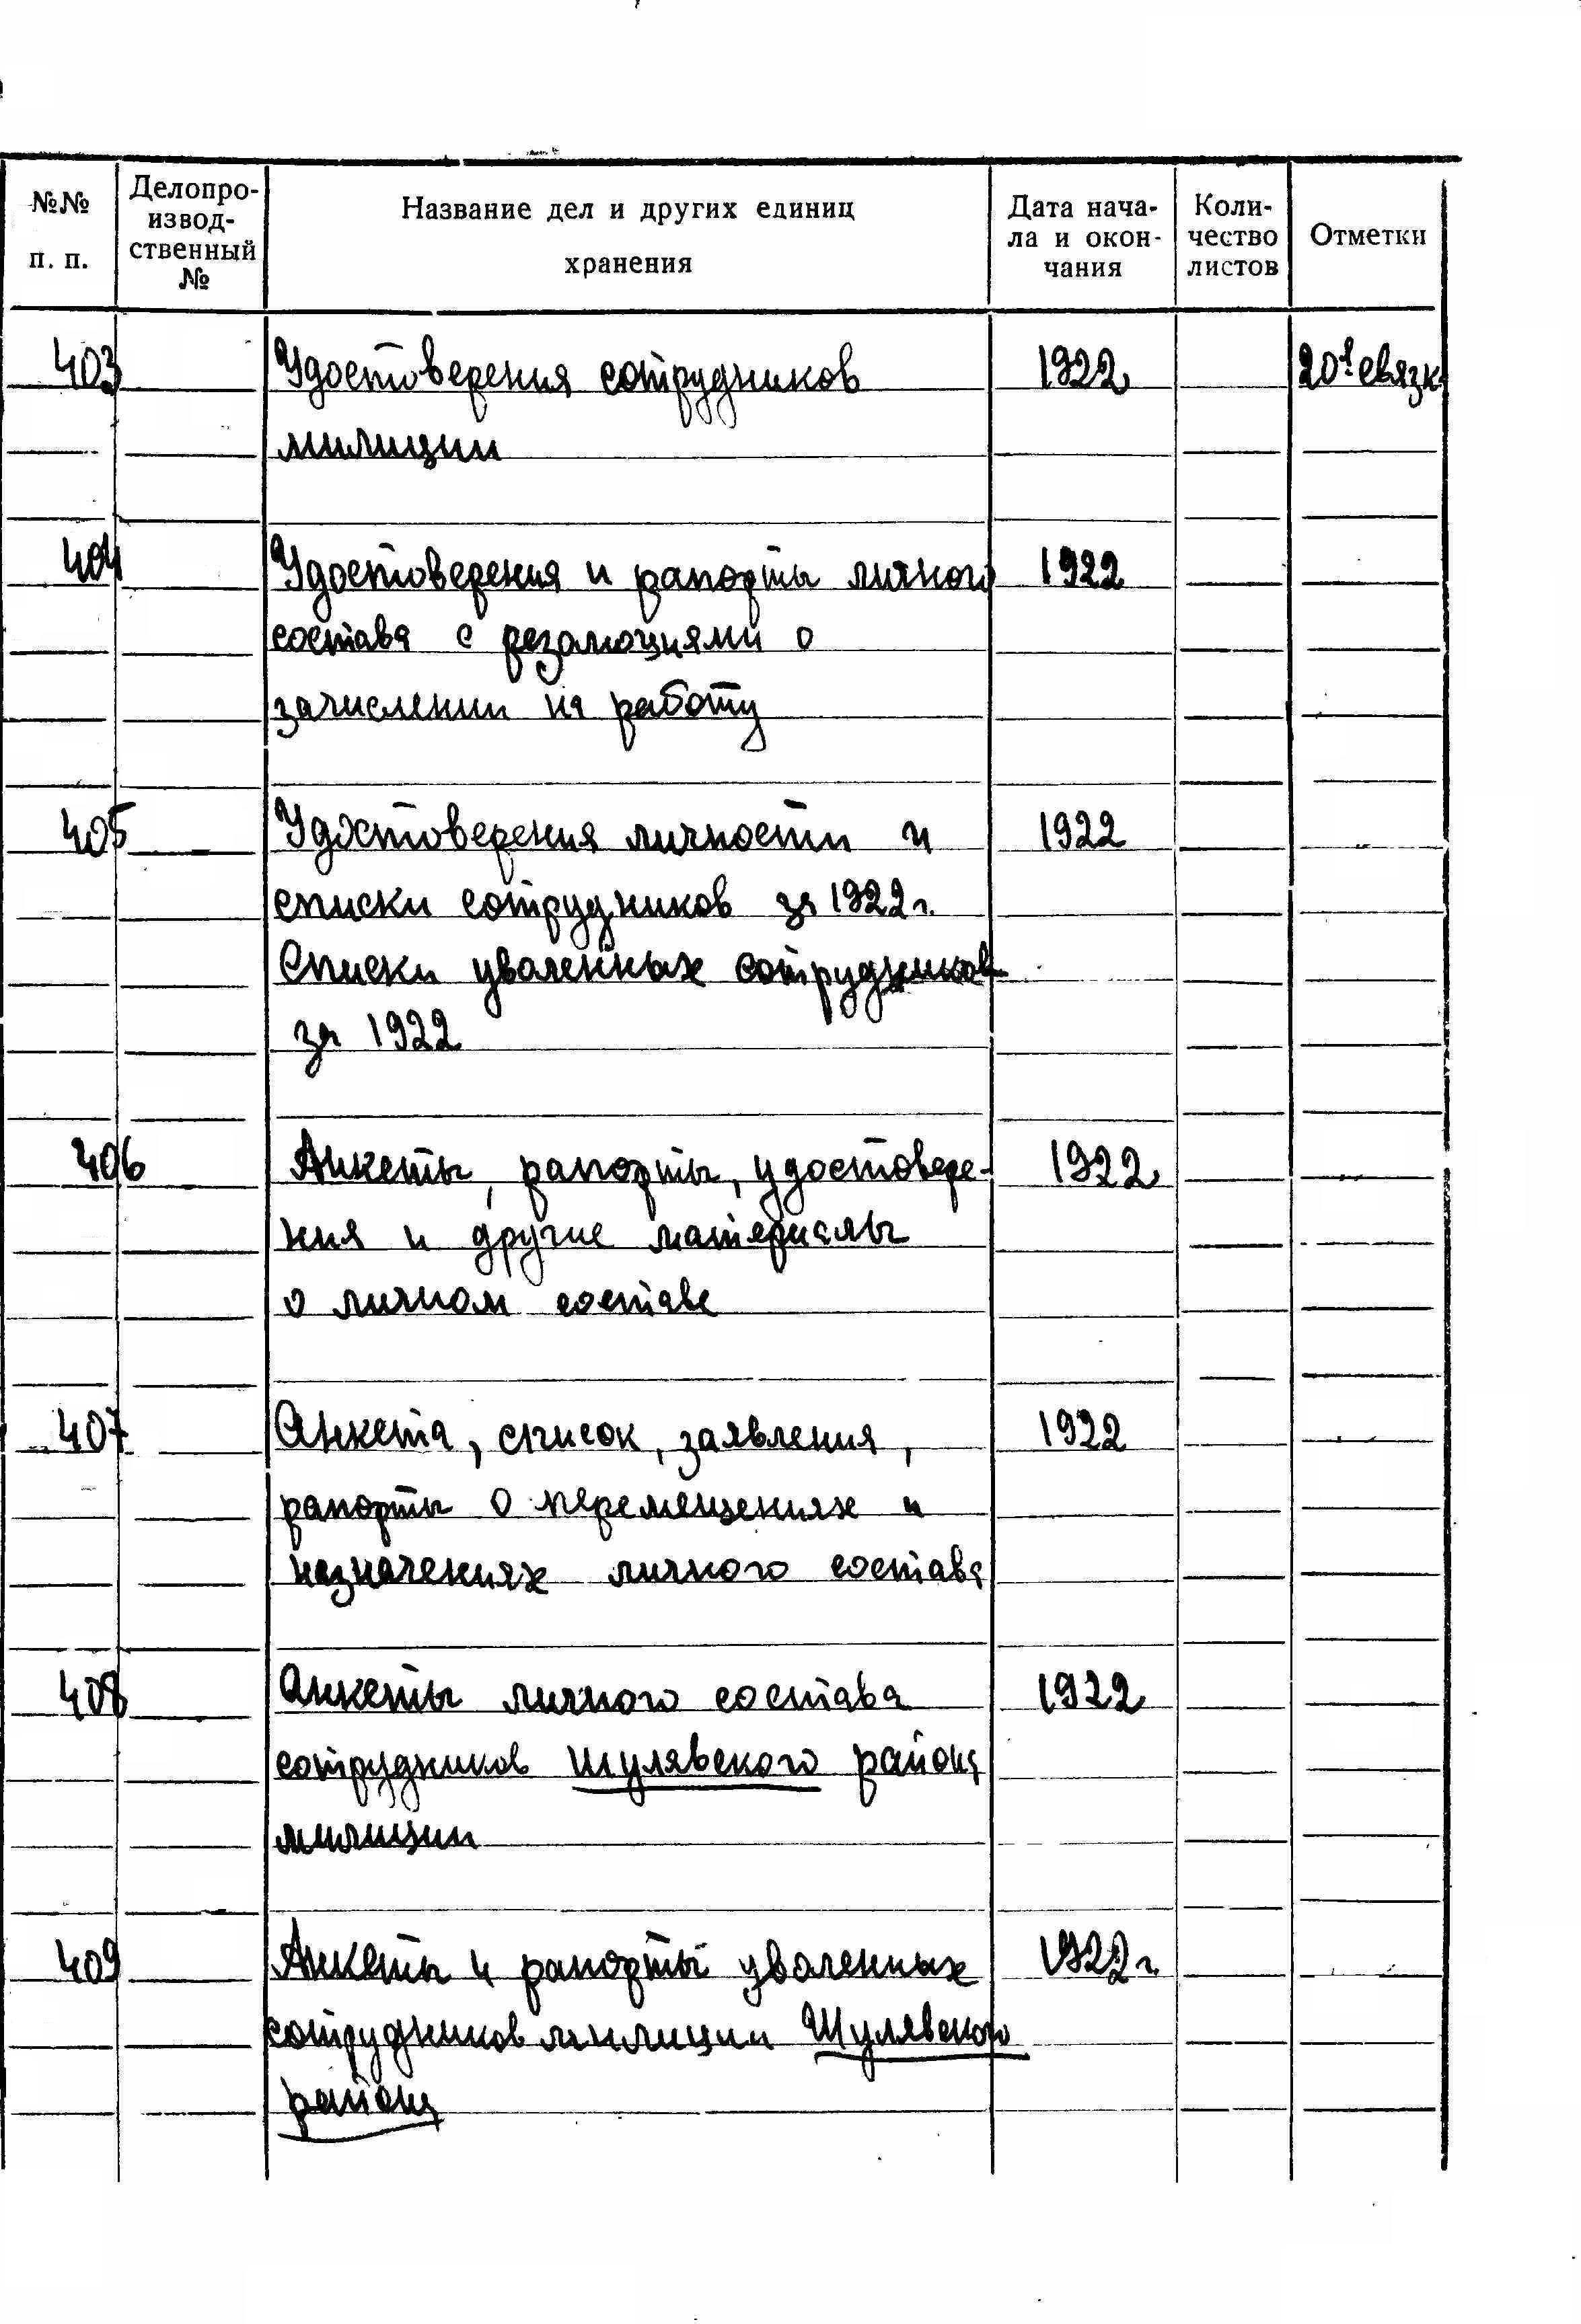 №№ п. п.
Делопро-
извод-
ственный
№
Название дел и других единиц
хранения
Дата нача-
ла и окон-
чания
Коли-
чество
листов
Отметки
403 Удостоверения сотрудников 1922 20я связк
милиции
404 Удостоверения и рапорты личного 1922
состава с резолюциями о
зачислении на работу
405 Удостоверения личности и 1922
списки сотрудников за 1922 г.
Списки уволенных сотрудников
за 1922
406 Анкеты, рапорты, удостовере- 1922
ния и другие материалы
о личном составе
407 Анкета, список, заявления, 1922
рапорты о перемещениях и
назначениях личного состава
408 Анкеты личного состава 1922
сотрудников Шулявского района
милиции
409 Анкеты и рапорты уволенных 1922 г.
сотрудников милиции Шулявского
района